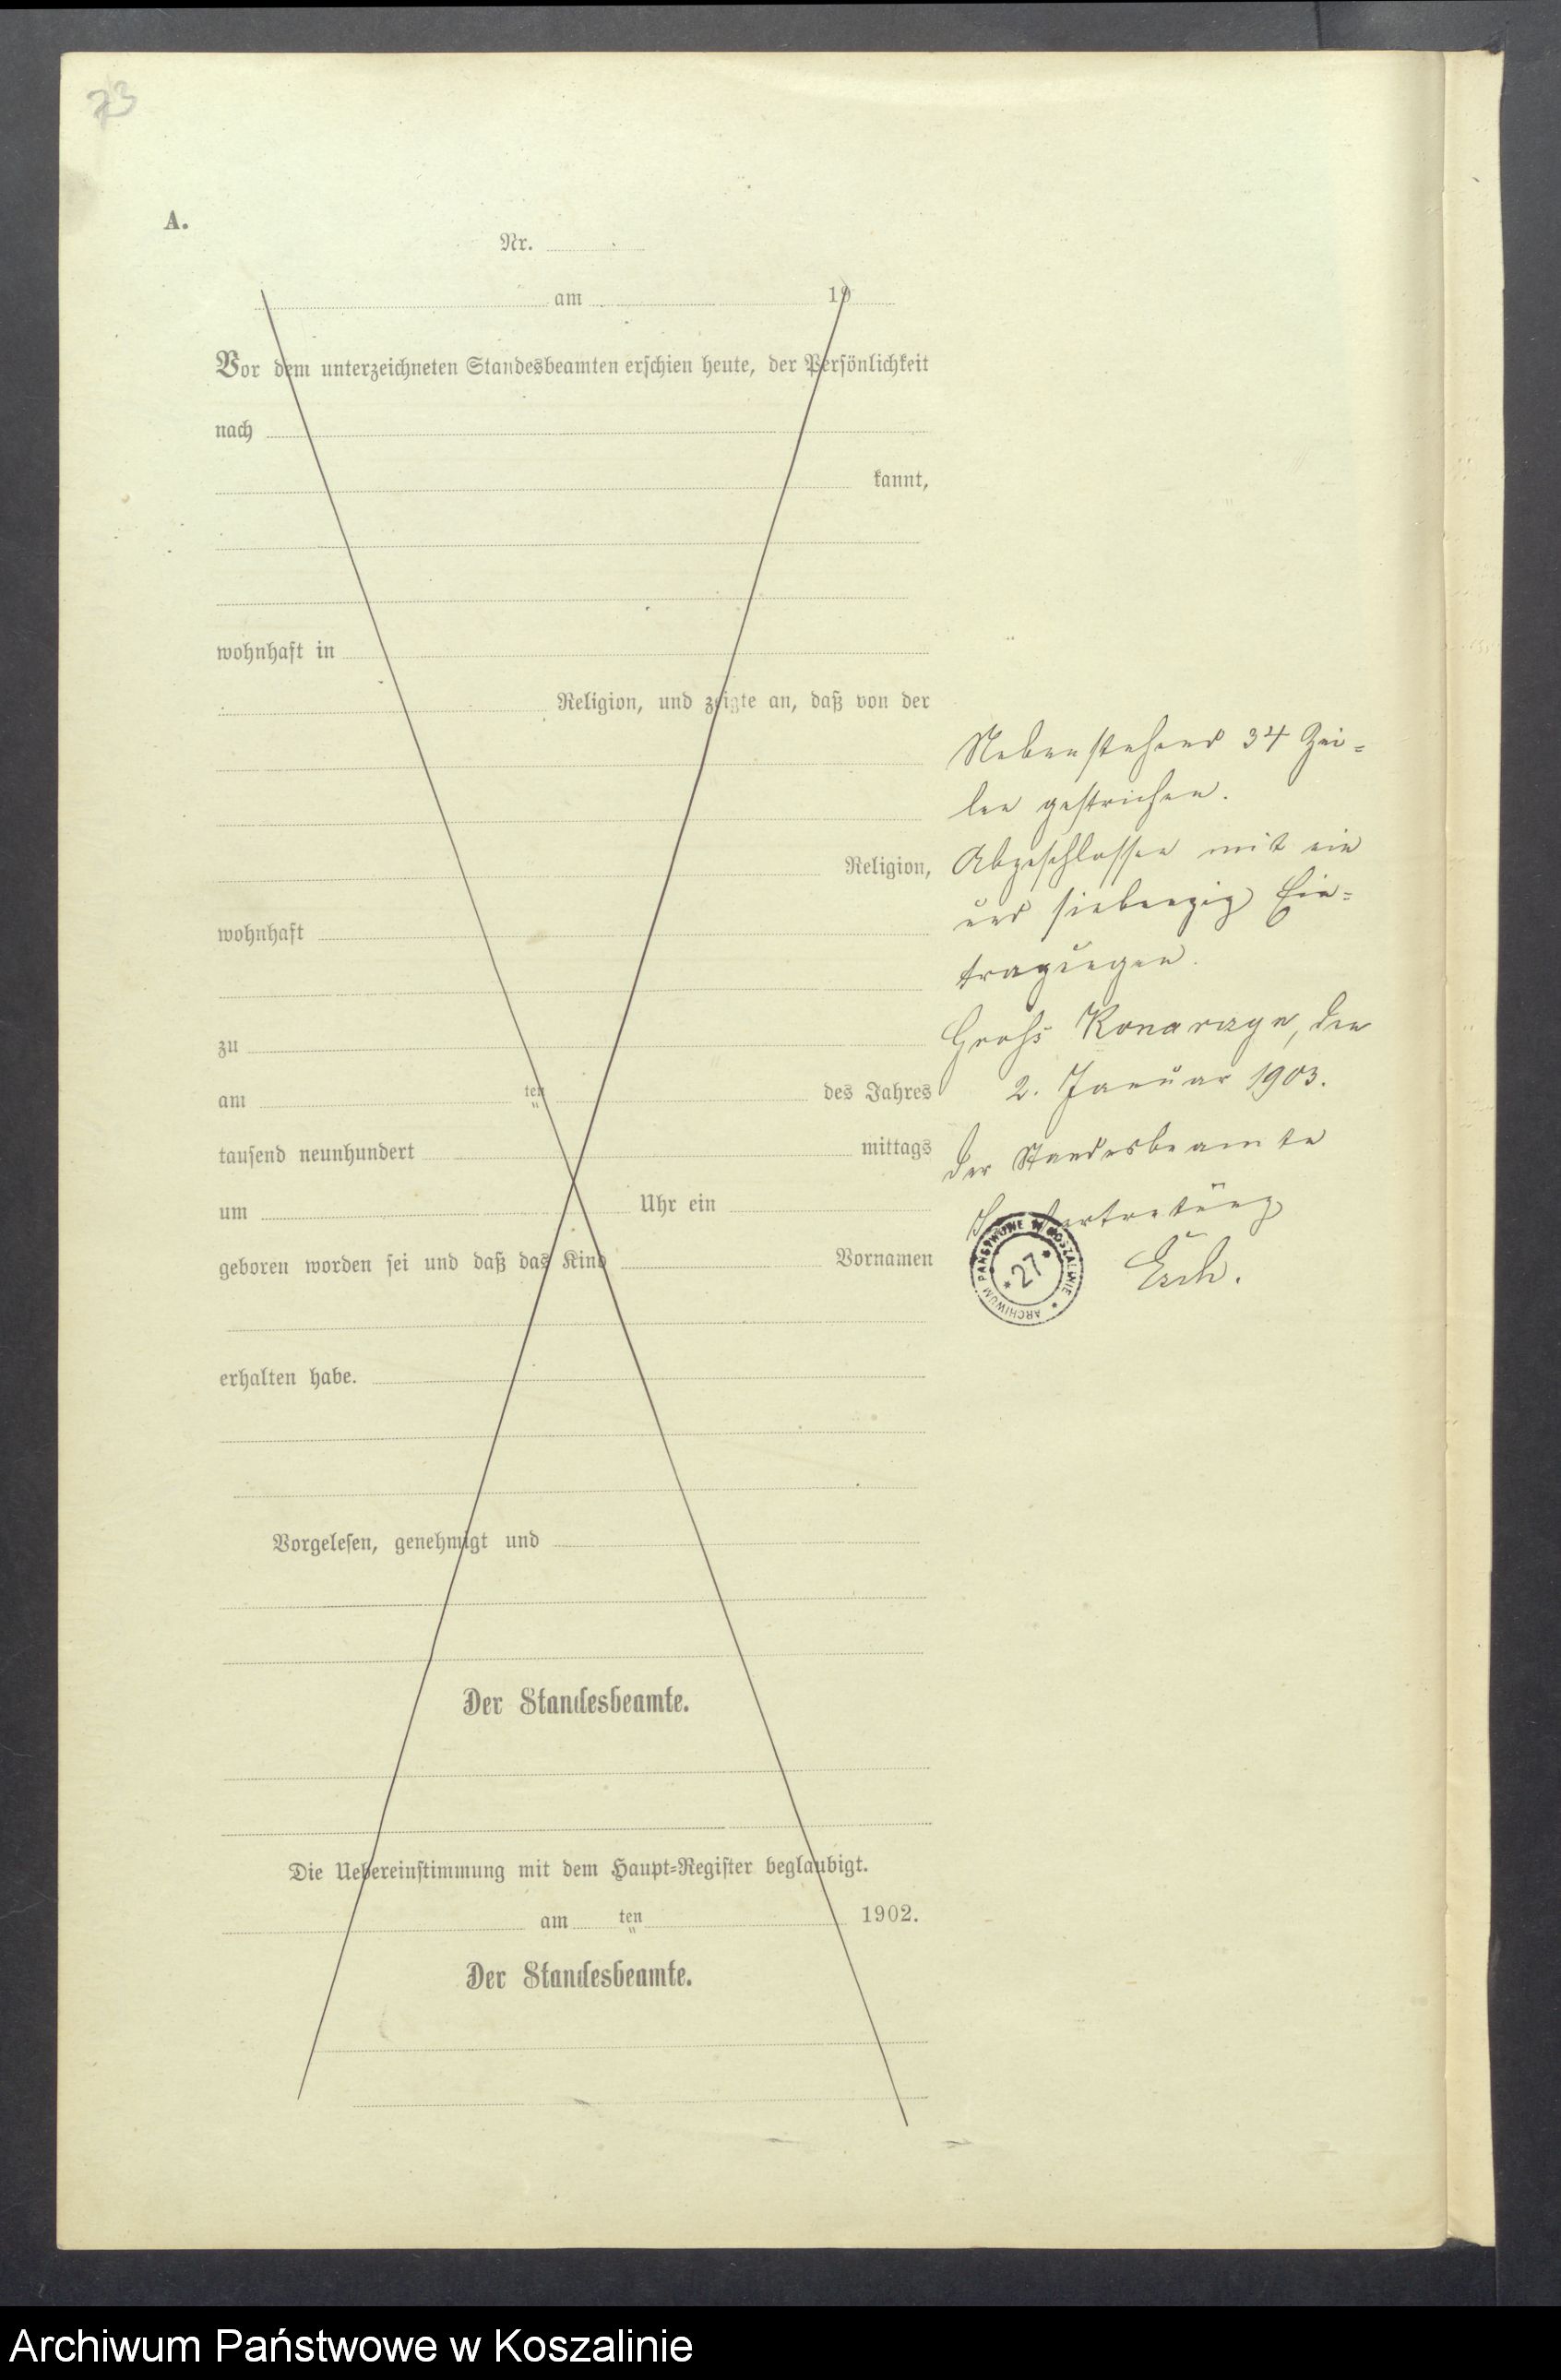 73
A.
Nr.
am 19
Vor dem unterzeichneten Standesbeamten erschien heute, der Persönlichkeit
nach
kannt,
wohnhaft in
Religion, und zeigte an, daß von der
Religion,
wohnhaft
zu
am ten des Jahres
tausend neunhundert mittags
um Uhr ein
geboren worden sei und daß das Kind Vornamen
erhalten habe.
Vorgelesen, genehmigt und
Der Standesbeamte.
Die Uebereinstimmung mit dem Haupt=Register beglaubigt.
am ten 1902.
Der Standesbeamte.
Nebenstehend 34 Zei=
len gestrichen.
Abgeschlossen mit ein
und siebenzig Ein=
tragungen.
Gross Konarzyn, den
2. Januar 1903.
Der Standesbeamte
In Vertretung
ARCHIWUM PAŃSTWOWE W KOSZALINIE
*27*
Archiwum Państwowe w Koszalinie